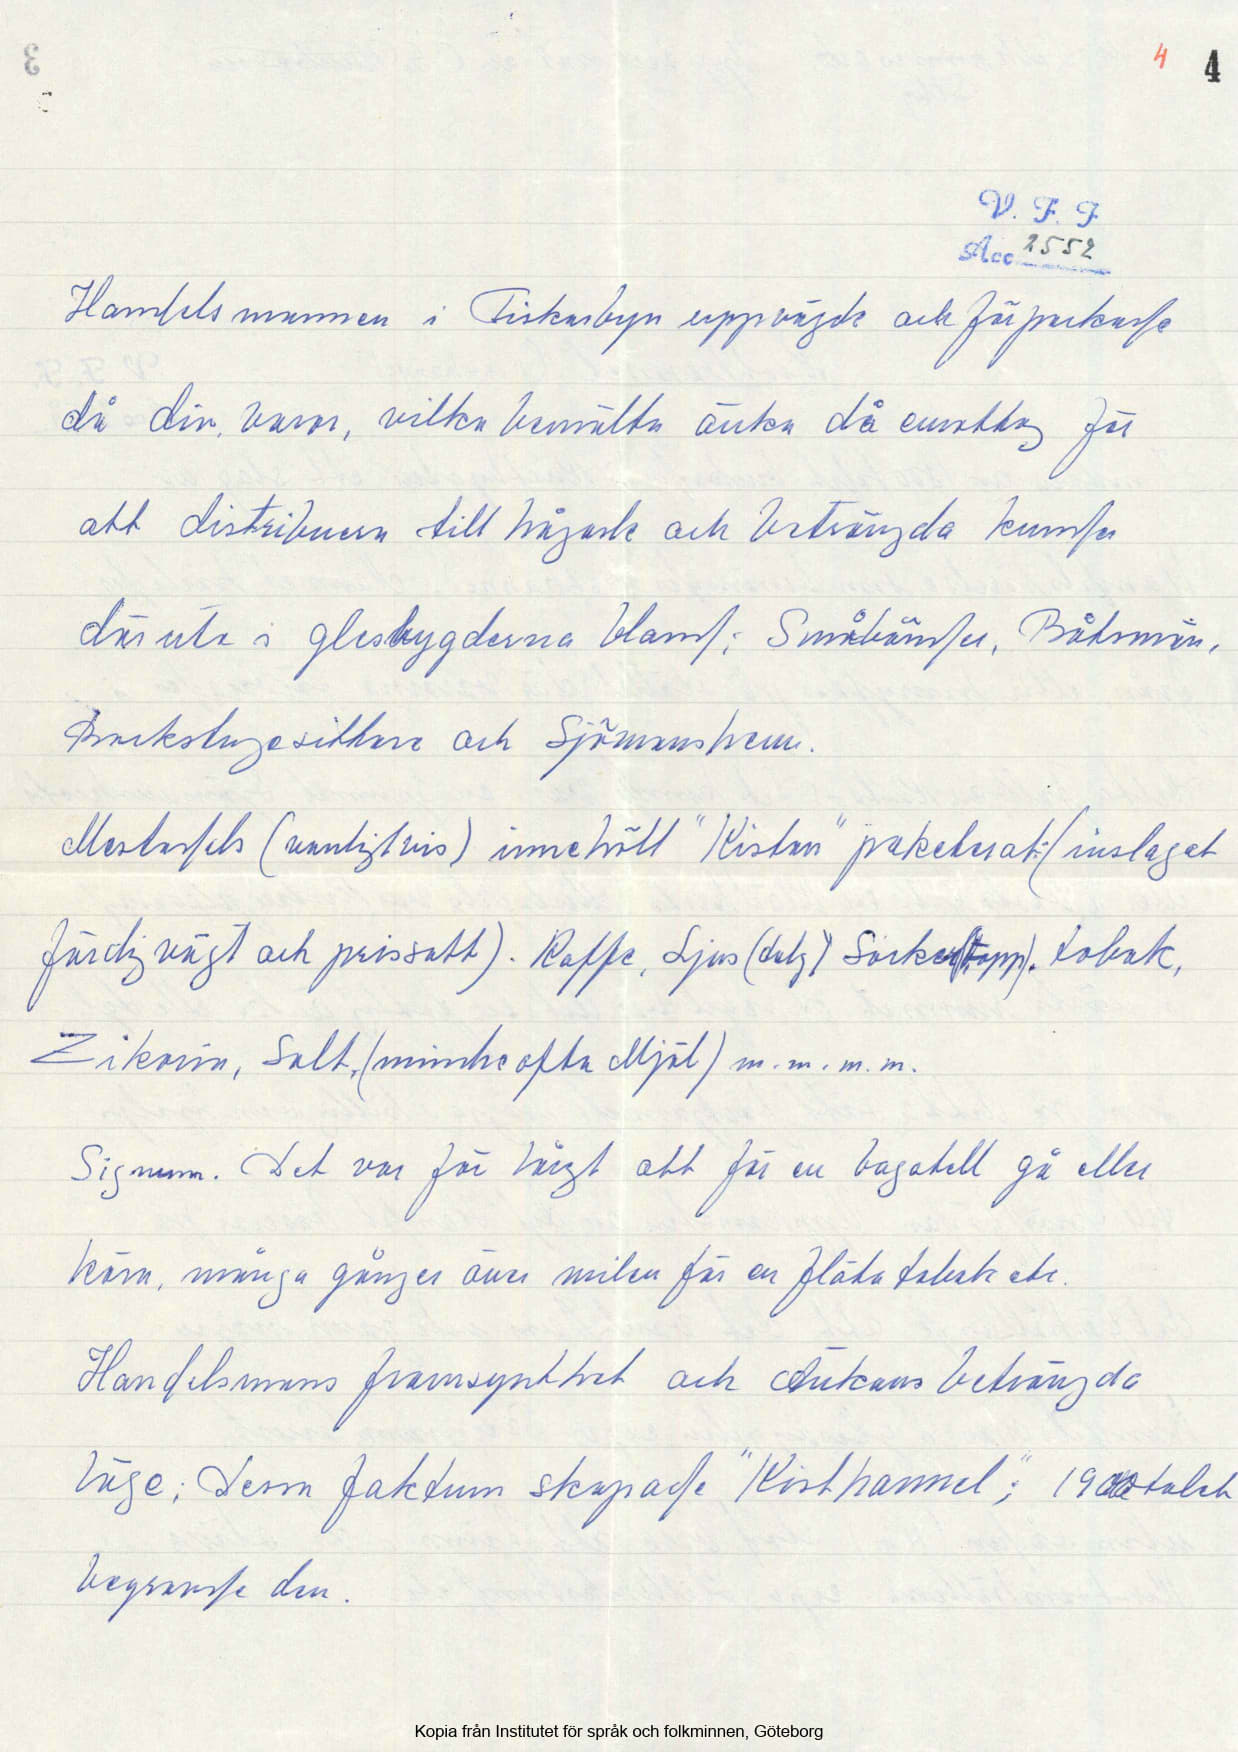 4 4
V. F. F
Acc 2552
Handelsmannen i Fiskarbyn uppvägde och förpackade
då div. varor, vilka bemälta änka då emottog för
att distribuera till hågade och beträngda kunder
därute i glesbygderna bland; Småbönder, Båtsmän,
Backstugesittare och Sjömanshem.
Mestadels (vanligtvis) innehöll "Kistan" paketerat:(inslaget
färdigvägt och prissatt). Kaffe, Ljus (talg) Socker(topp), tobak,
Zikoria, Salt, (mindre ofta Mjöl) m.m.m.m.
Signum. Det var för långt att för en bagatell gå eller
köra, många gånger över milen för en fläta tobak etc.
Handelsmans framsynthet och Änkans beträngda
läge; dessa faktum skapade "Kisthannel"; 1900talet
begravde den.
Kopia från Institutet för språk och folkminnen, Göteborg